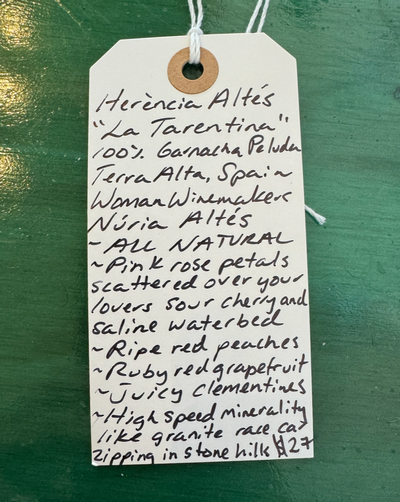 Herència Altés
"La Tarentina"
100% Garnacha Peluda
Terra Alta, Spain
Woman Winemaker
Núria Altés
~ ALL NATURAL
~ Pink rose petals
scattered over your
lovers sour cherry and
saline waterbed
~ Ripe red peaches
~ Ruby red grapefruit
~ Juicy clementines
~ High speed minerality
like granite race car
zipping in stone hills $27